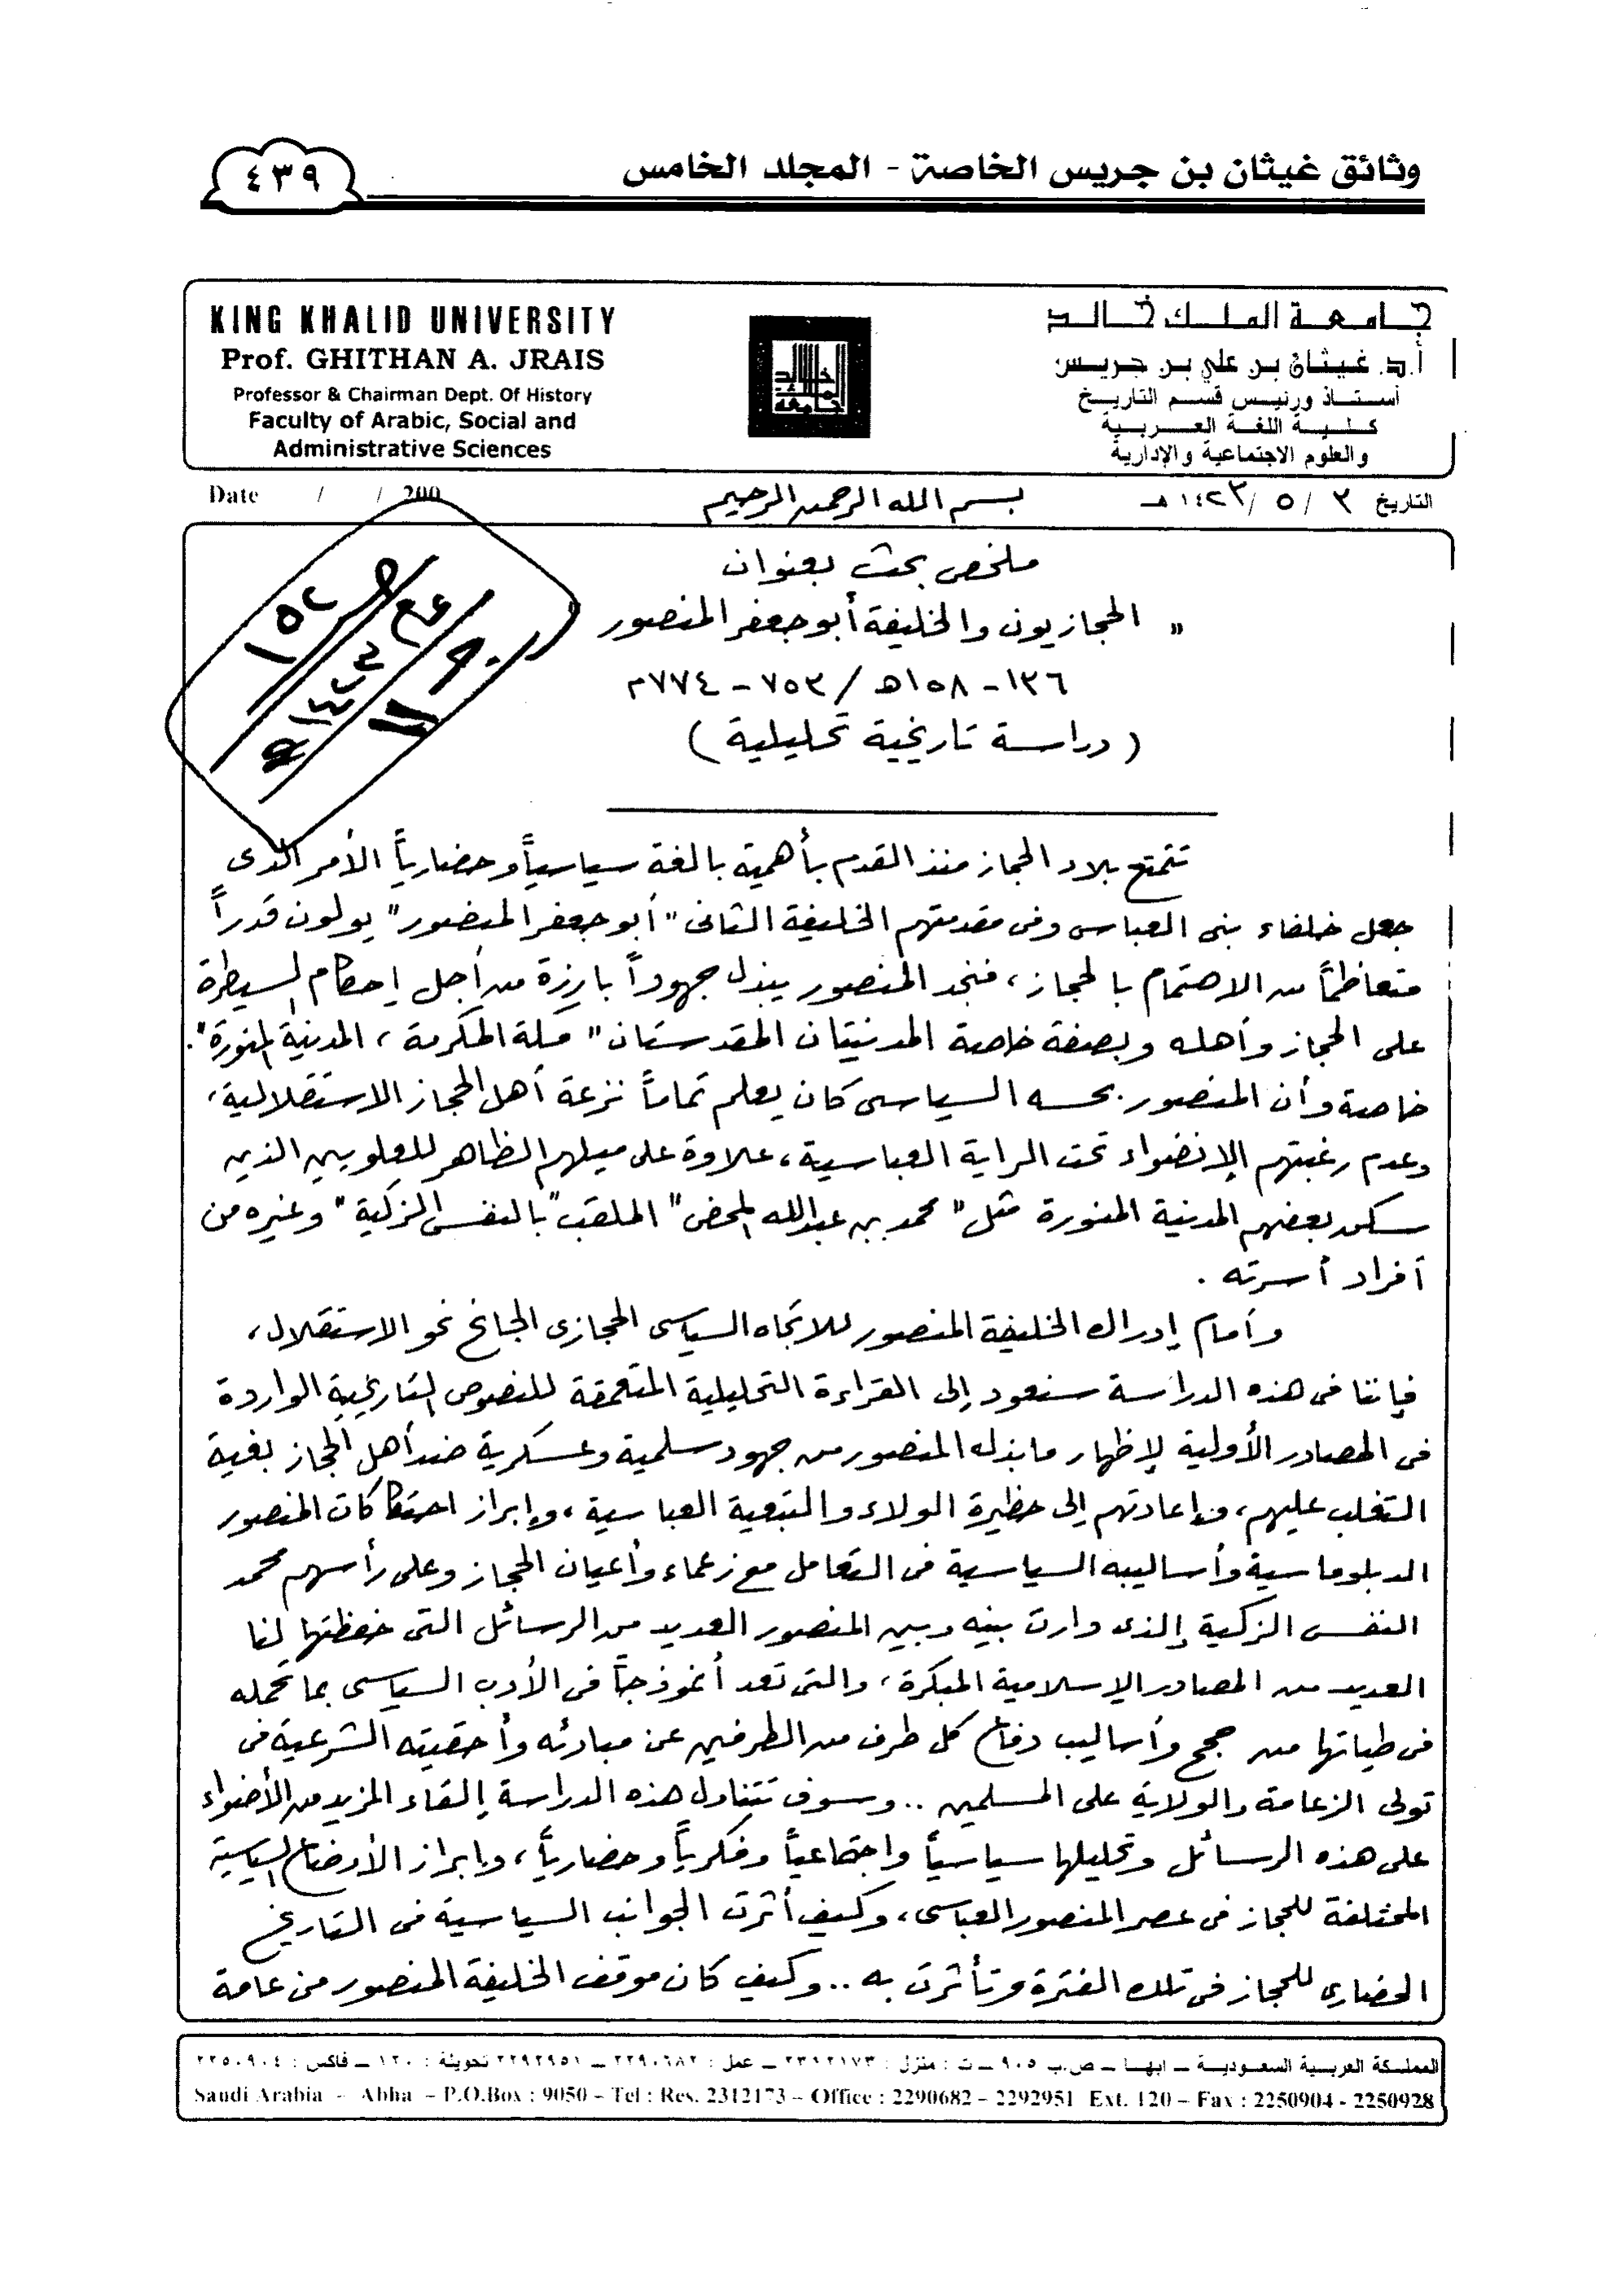 وثائق غيثان بن جريس الخاصة - المجلد الخامس
٤٣٩
KING KHALID UNIVERSITY
Prof. GHITHAN A. JRAIS
Professor & Chairman Dept. Of History
Faculty of Arabic, Social and
Administrative Sciences
جامعة الملك خالد
أ.د. غيثان بن علي بن جريس
أستاذ ورئيس قسم التاريخ
كلية اللغة العربية
والعلوم الاجتماعية والإدارية
جامعة الملك خالد
التاريخ ٣ / ٥ / ١٤٢٣ هـ
بسم الله الرحمن الرحيم
Date / / 200
ملخص بحث بعنوان
" الحجازيون والخليفة أبو جعفر المنصور
١٣٦ - ١٥٨هـ / ٧٥٣ - ٧٧٤م
( دراسة تاريخية تحليلية )
تتمتع بلاد الحجاز منذ القدم بأهمية بالغة سياسياً وحضارياً الأمر الذى
جعل خلفاء بنى العباس وفى مقدمتهم الخليفة الثانى "أبو جعفر المنصور" يولون قدراً
متعاظماً من الاهتمام بالحجاز، فنجد المنصور يبذل جهوداً بارزة من أجل إحكام السيطرة
على الحجاز وأهله وبصفة خاصة المدنيتان المقدستان "مكة المكرمة، المدنية المنورة".
خاصة وأن المنصور بحسه السياسى كان يعلم تماماً نزعة أهل الحجاز الاستقلالية،
وعدم رغبتهم الإنضواء تحت الراية العباسية، علاوة على ميلهم الظاهر للعلويين الذين
سكن بعضهم المدنية المنورة مثل "محمد بن عبدالله المحض" الملقب "بالنفس الزكية" وغيره من
أفراد أسرته .
وأمام إدراك الخليفة المنصور للاتجاه السياسى الحجازى الجانح نحو الاستقلال،
فإننا فى هذه الدراسة سنعود إلى القراءة التحليلية المتعمقة للنصوص التاريخية الواردة
فى المصادر الأولية لإظهار ما بذله المنصور من جهود سلمية وعسكرية ضد أهل الحجاز بغية
التغلب عليهم، وإعادتهم إلى حظيرة الولاء والتبعية العباسية، وإبراز احتكاكات المنصور
الدبلوماسية وأساليبه السياسية فى التعامل مع زعماء وأعيان الحجاز وعلى رأسهم محمد
النفس الزكية الذى دارت بينه وبين المنصور العديد من الرسائل التى حفظتها لنا
العديد من المصادر الإسلامية المبكرة، والتى تعد أنموذجاً فى الأدب السياسى بما تحمله
فى طياتها من حجج وأساليب دفاع كل طرف من الطرفين عن مبادئه وأحقيته الشرعية فى
تولى الزعامة والولاية على المسلمين .. وسوف تتناول هذه الدراسة إلقاء المزيد من الأضواء
على هذه الرسائل وتحليلها سياسياً واجتماعياً وفكرياً وحضارياً، وإبراز الأوضاع السياسية
المختلفة للحجاز فى عصر المنصور العباسى، وكيف أثرت الجوانب السياسية فى التاريخ
الحضارى للحجاز فى تلك الفترة وتأثرت به .. وكيف كان موقف الخليفة المنصور من عامة
المملكة العربية السعودية – ابها – ص.ب ٩٠٥ – ت : منزل : ٢٣١٢١٧٣ – عمل : ٢٢٩٠٦٨٢ – ٢٢٩٢٩٥١ تحويلة : ١٢٠ – فاكس : ٢٢٥٠٩٠٤
Saudi Arabia – Abha – P.O.Box : 9050 – Tel : Res. 2312173 – Office : 2290682 – 2292951 Ext. 120 – Fax : 2250904 - 2250928